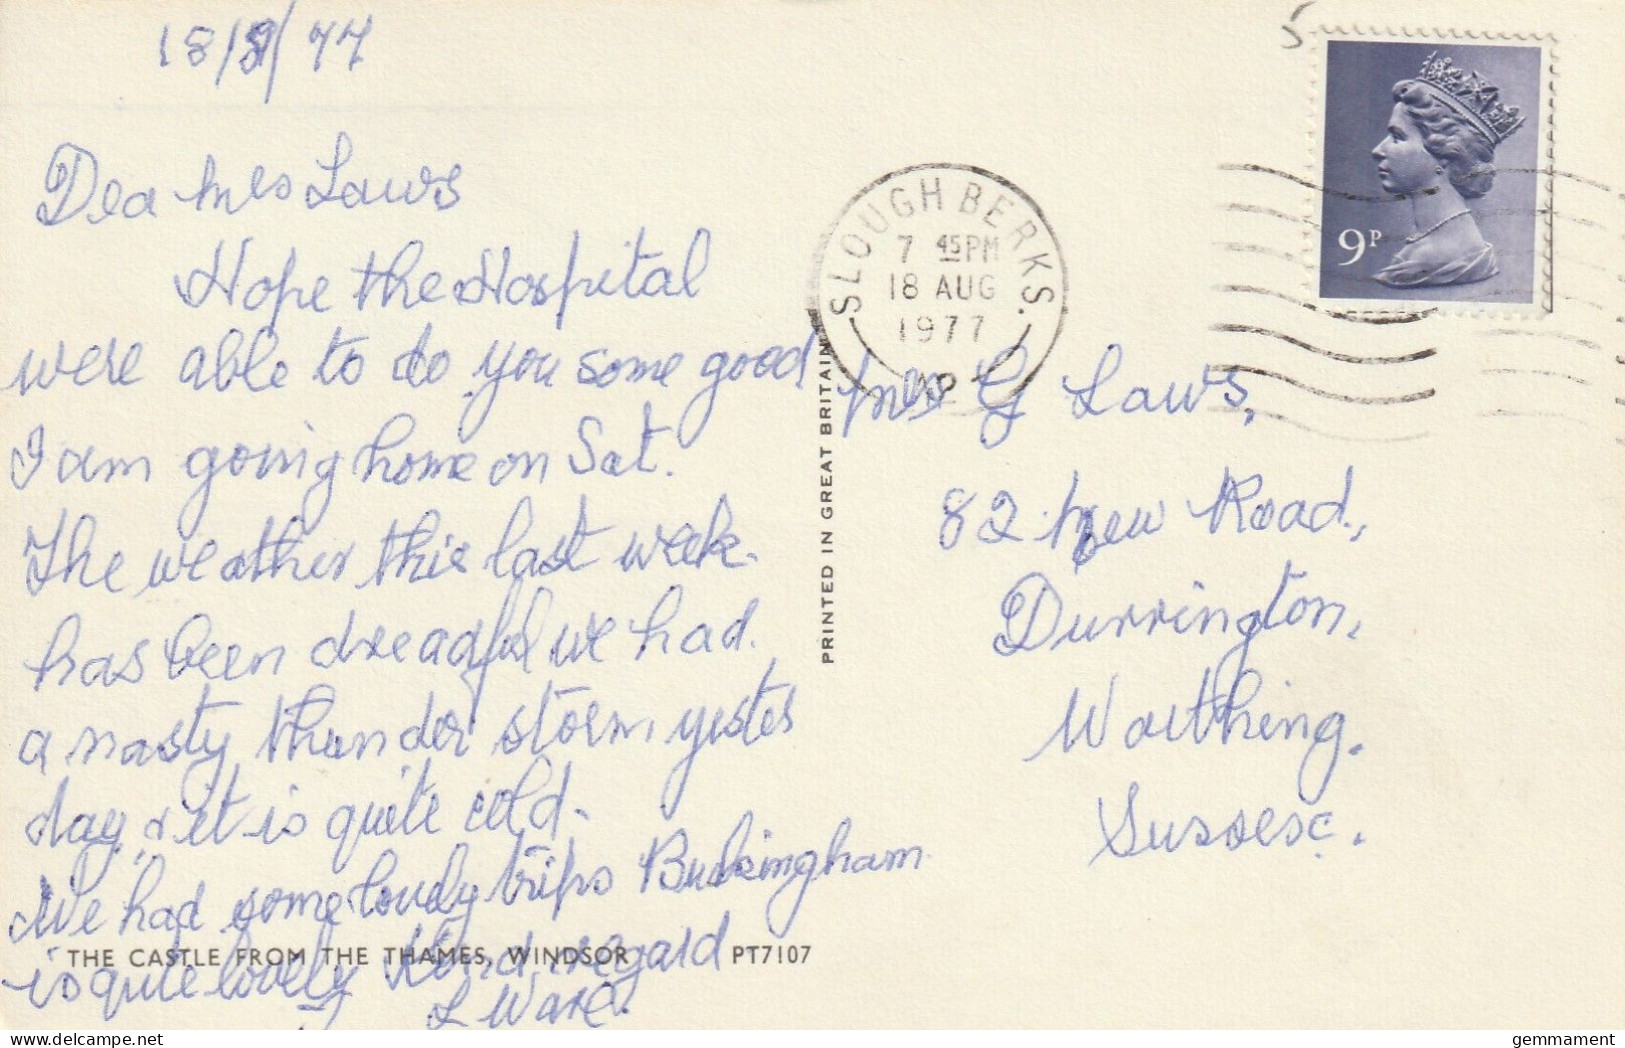 18/8/77
Dea Mrs Laws
Hope the Hospital
were able to do you some good
I am going home on Sat.
The weather this last week.
has been dreadful we had.
a nasty thunder storm, yester
day, & it is quite cold.
We had some lovely trips Buckingham
is quite lovely Kind regard
L Ware.
THE CASTLE FROM THE THAMES, WINDSOR PT7107
PRINTED IN GREAT BRITAIN
SLOUGH BERKS.
7 45PM
18 AUG
1977
9P
Mrs G Laws,
82 New Road,
Durrington,
Worthing.
Sussex.
gemmament